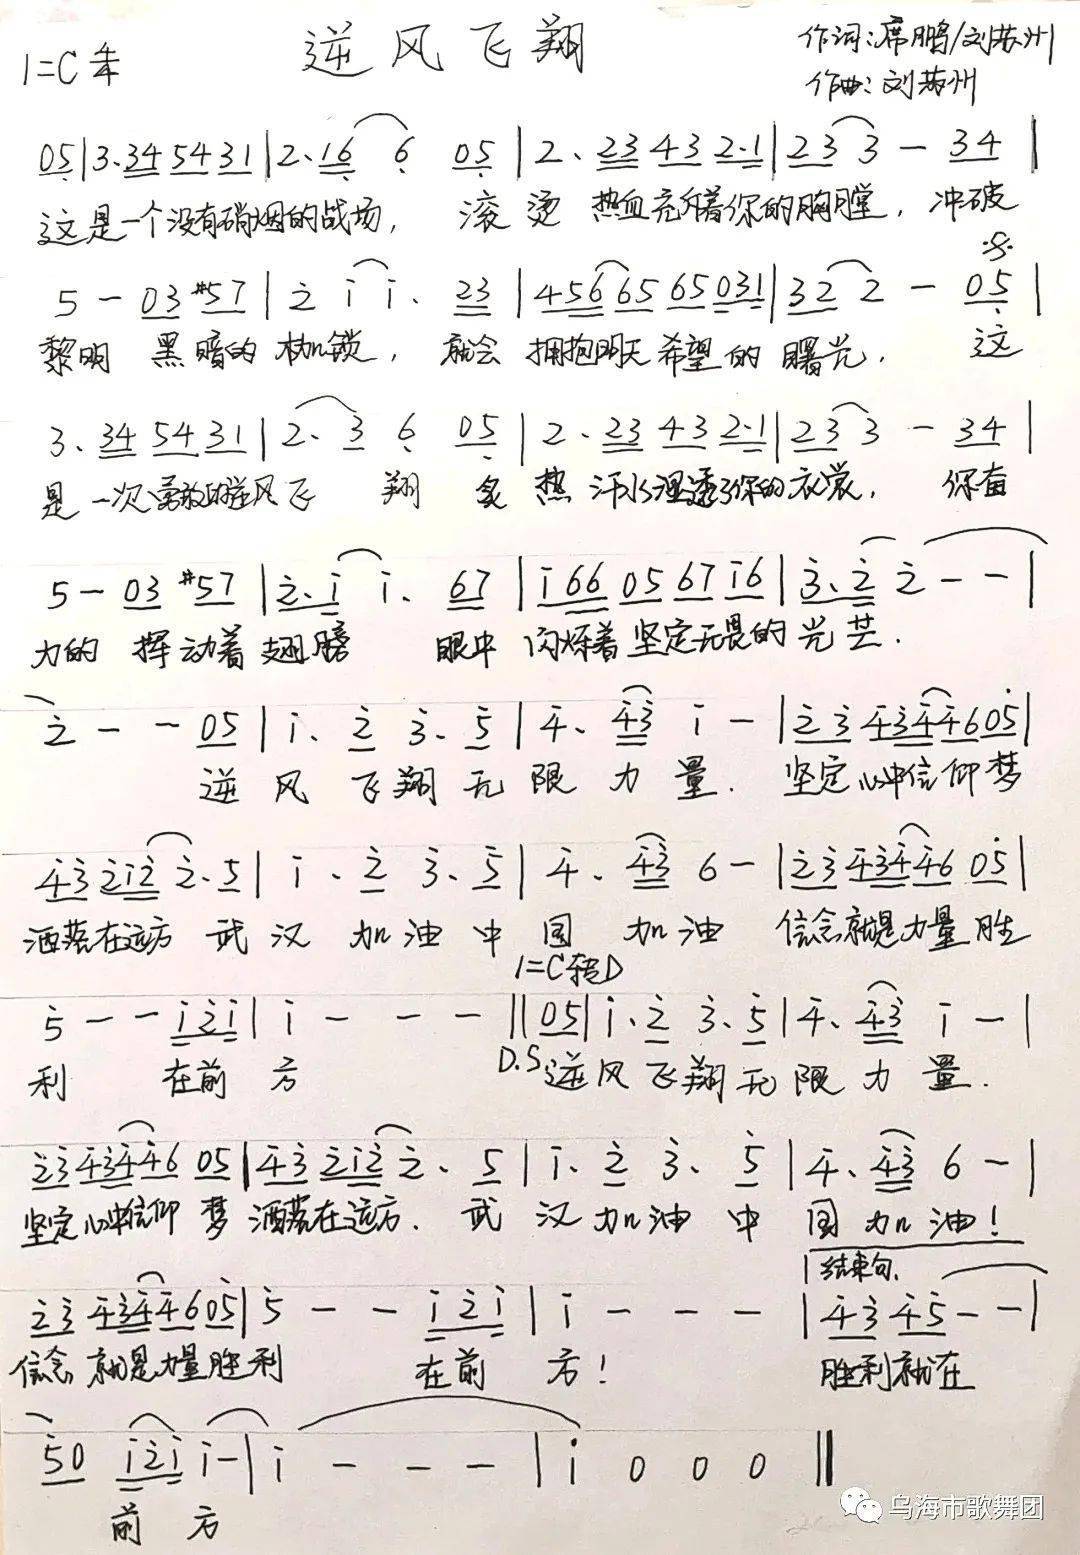 逆风飞翔
作词:席鹏/刘苏州
1=C 4/4
作曲:刘苏州
05|3.34 54 31|2.16 6 05|2.23 43 2.1|23 3 — 34|
这是一个没有硝烟的战场, 滚烫 热血充斥着你的胸膛, 冲破
5 — 03 #57|2 i i. 23|456 65 65 031|32 2 — 05|
黎明 黑暗的枷锁, 就会 拥抱明天希望的曙光, 这
3.34 54 31|2. 3 6 05|2.23 43 2.1|23 3 — 34|
是一次勇敢的逆风飞 翔 炙热 汗水浸透了你的衣裳, 你奋
5 — 03 #57|2.i i. 67|i66 05 67 i6|3.2 2 — —|
力的 挥动着翅膀 眼中闪烁着坚定无畏的光芒.
2 — — 05|i. 2 3. 5|4. 43 i — |23 434 46 05|
逆风飞翔无限力量. 坚定心中信仰梦
43 2i2 2. 5|i. 2 3. 5|4. 43 6 — |23 434 46 05|
洒落在远方 武汉加油中国加油 信念就是力量胜
1=C转D
5 — — i2i|i — — — ||05|i. 2 3. 5|4. 43 i — |
D.S
利 在前方 逆风飞翔无限力量.
23 434 46 05|43 2i2 2. 5|i. 2 3. 5|4. 43 6 — |
坚定心中信仰 梦洒落在远方. 武汉加油中国加油!
结束句.
23 434 46 05|5 — — i2i|i — — — |43 45 — — |
信念就是力量胜利 在前方! 胜利就在
50 i2i i — |i — — — |i 0 0 0||
前方
乌海市歌舞团